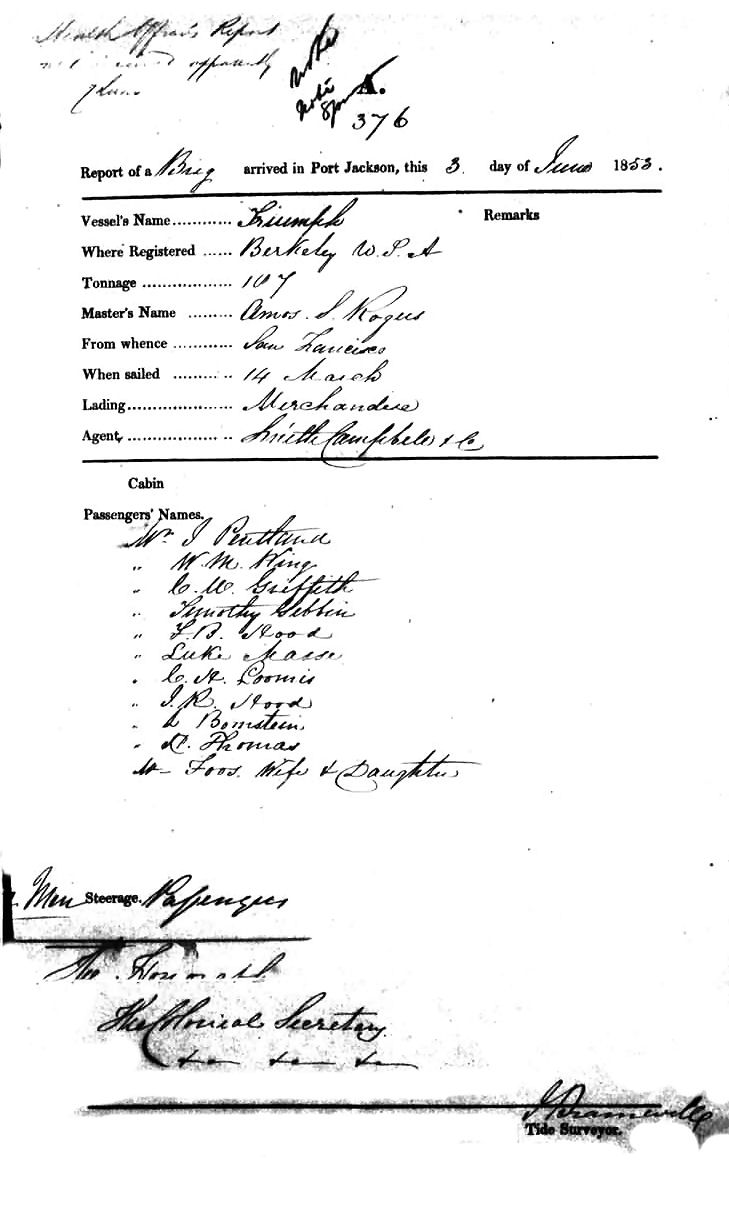 Health Officer's Report
not received apparently
376
Report of a Brig arrived in Port Jackson, this 3 day of June 1853.
Vessel's Name............ Triumph Remarks
Where Registered ...... Berkely U.S.A
Tonnage .................. 107
Master's Name ......... Amos. S. Rogers
From whence ............ San Francisco
When sailed ............ 14 March
Lading..................... Merchandise
Agent, .................... Smith Campbell & Co
Cabin
Passengers' Names.
Mr. J Pentland
" W. M. Wing
" C. W. Griffith
" Timothy Gibbin
" F. B. Hood
" Luke Masse
" C. H. Loomis
" J. R. Hood
" Bornstein
" Thomas
Mr Foos. Wife & Daughter
Men Steerage. Passengers
The Honorable
The Colonial Secretary
Tide Surveyor.